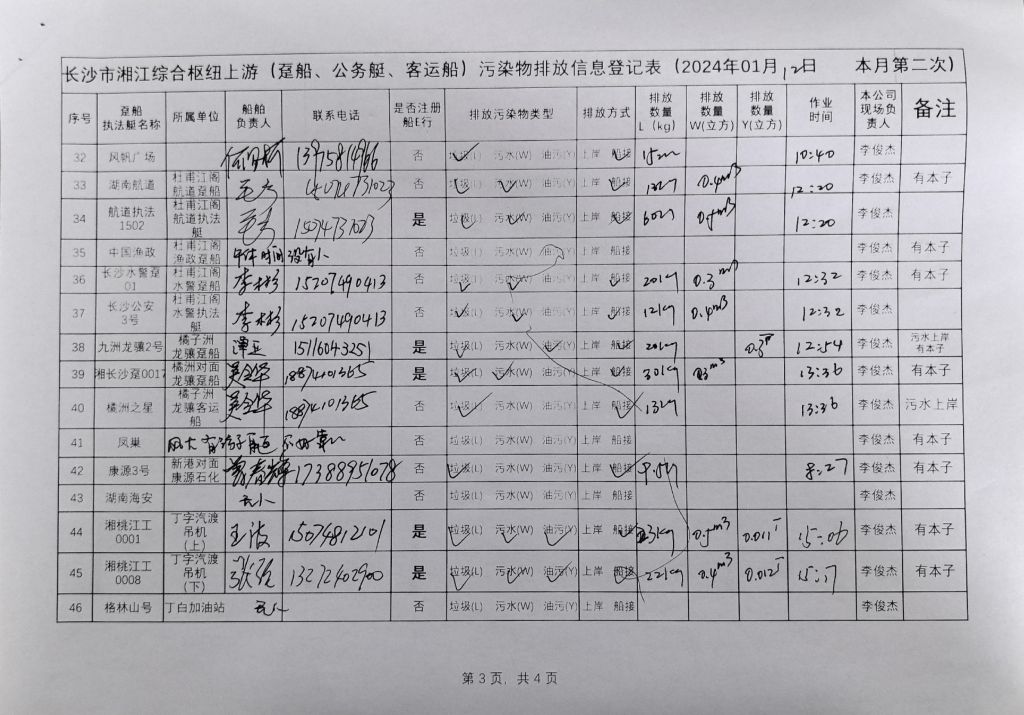 长沙市湘江综合枢纽上游（趸船、公务艇、客运船）污染物排放信息登记表（2024年01月12日 本月第二次）
序号 趸船执法艇名称 所属单位 船舶负责人 联系电话 是否注册船E行 排放污染物类型 排放方式 排放数量L（kg） 排放数量W(立方) 排放数量Y(立方) 作业时间 本公司现场负责人 备注
32 风帆广场 13975814966 否 垃圾(L) 污水(W) 油污(Y) 上岸 船接 10:40 李俊杰
33 湖南航道 杜甫江阁航道趸船 否 垃圾(L) 污水(W) 油污(Y) 上岸 船接 0.4m3 12:20 李俊杰 有本子
34 航道执法1502 杜甫江阁航道执法艇 是 垃圾(L) 污水(W) 油污(Y) 上岸 船接 12:20 李俊杰
35 中国渔政 杜甫江阁渔政趸船 时间没有人 否 垃圾(L) 污水(W) 油污(Y) 上岸 船接 李俊杰 有本子
36 长沙水警趸01 杜甫江阁水警趸船 李彬彬 15207490413 否 垃圾(L) 污水(W) 油污(Y) 上岸 船接 20kg 0.3m3 12:32 李俊杰 有本子
37 长沙公安3号 杜甫江阁水警执法艇 李彬彬 15207490413 否 垃圾(L) 污水(W) 油污(Y) 上岸 船接 12kg 0.4m3 12:32 李俊杰
38 九洲龙骧2号 橘子洲龙骧趸船 谭卫 15116043251 是 垃圾(L) 污水(W) 油污(Y) 上岸 船接 20kg 12:54 李俊杰 污水上岸有本子
39 湘长沙趸0017 橘洲对面龙骧趸船 18874101365 是 垃圾(L) 污水(W) 油污(Y) 上岸 船接 30kg 13:36 李俊杰 有本子
40 橘洲之星 橘子洲龙骧客运船 18874101365 否 垃圾(L) 污水(W) 油污(Y) 上岸 船接 13kg 13:36 李俊杰 污水上岸
41 凤巢 风大 有 不好靠 否 垃圾(L) 污水(W) 油污(Y) 上岸 船接 李俊杰 有本子
42 康源3号 新港对面康源石化 17388951078 否 垃圾(L) 污水(W) 油污(Y) 上岸 船接 8:27 李俊杰 有本子
43 湖南海安 无人 否 垃圾(L) 污水(W) 油污(Y) 上岸 船接 李俊杰
44 湘桃江工0001 丁字汽渡吊机（上） 王波 15074812101 是 垃圾(L) 污水(W) 油污(Y) 上岸 船接 23kg 0.5m3 0.011T 15:06 李俊杰 有本子
45 湘桃江工0008 丁字汽渡吊机（下） 张强 13272402900 是 垃圾(L) 污水(W) 油污(Y) 上岸 船接 22kg 0.4m3 0.012T 15:17 李俊杰 有本子
46 格林山号 丁白加油站 无人 否 垃圾(L) 污水(W) 油污(Y) 上岸 船接 李俊杰
第 3 页，共 4 页